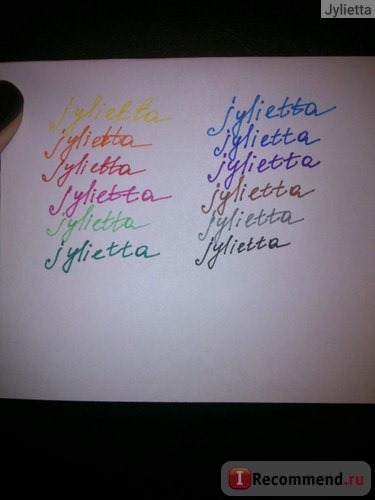 Jylietta
jylietta
jylietta
jylietta
jylietta
jylietta
jylietta
jylietta
jylietta
jylietta
jylietta
jylietta
jylietta
I Recommend.ru